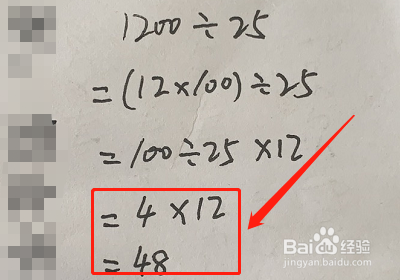 1200÷25
=(12×100)÷25
=100÷25×12
=4×12
=48
Baidu经验
jingyan.baidu.com